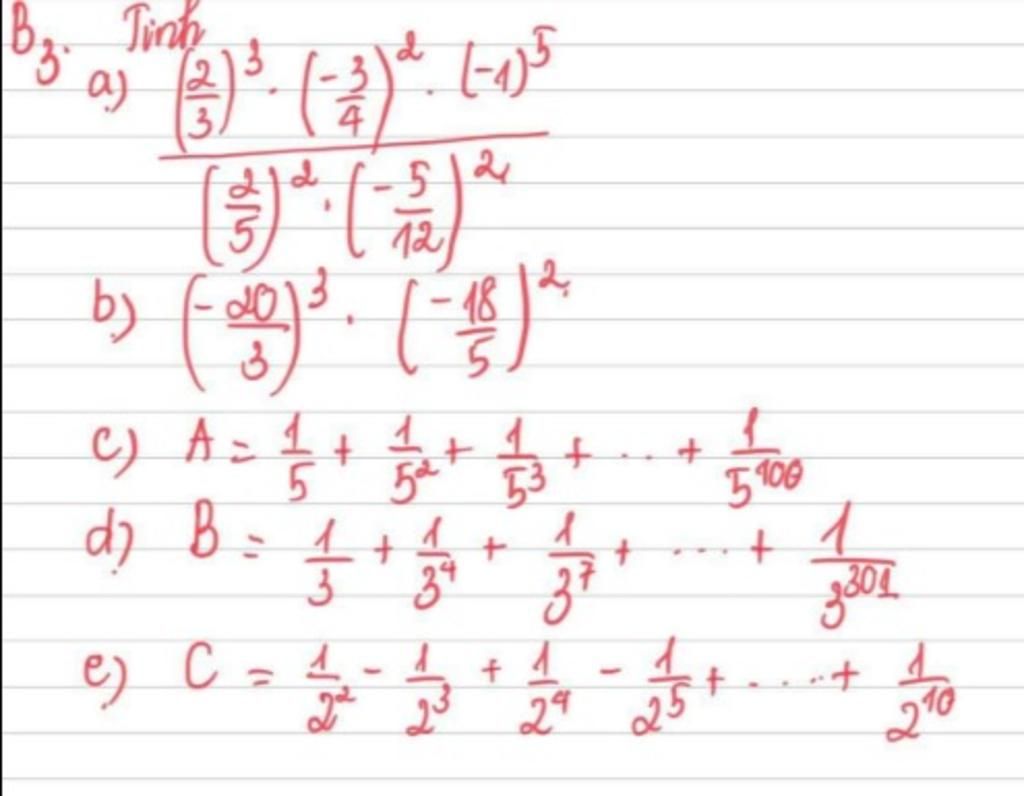 B3. Tính
a) \frac{\left(\frac{2}{3}\right)^3 \cdot \left(-\frac{3}{4}\right)^2 \cdot (-1)^5}{\left(\frac{2}{5}\right)^2 \cdot \left(-\frac{5}{12}\right)^2}
b) \left(-\frac{20}{3}\right)^3 \cdot \left(-\frac{18}{5}\right)^2
c) A = \frac{1}{5} + \frac{1}{5^2} + \frac{1}{5^3} + .. + \frac{1}{5^{100}}
d) B = \frac{1}{3} + \frac{1}{3^4} + \frac{1}{3^7} + .... + \frac{1}{3^{301}}
e) C = \frac{1}{2^2} - \frac{1}{2^3} + \frac{1}{2^4} - \frac{1}{2^5} + ..... + \frac{1}{2^{10}}